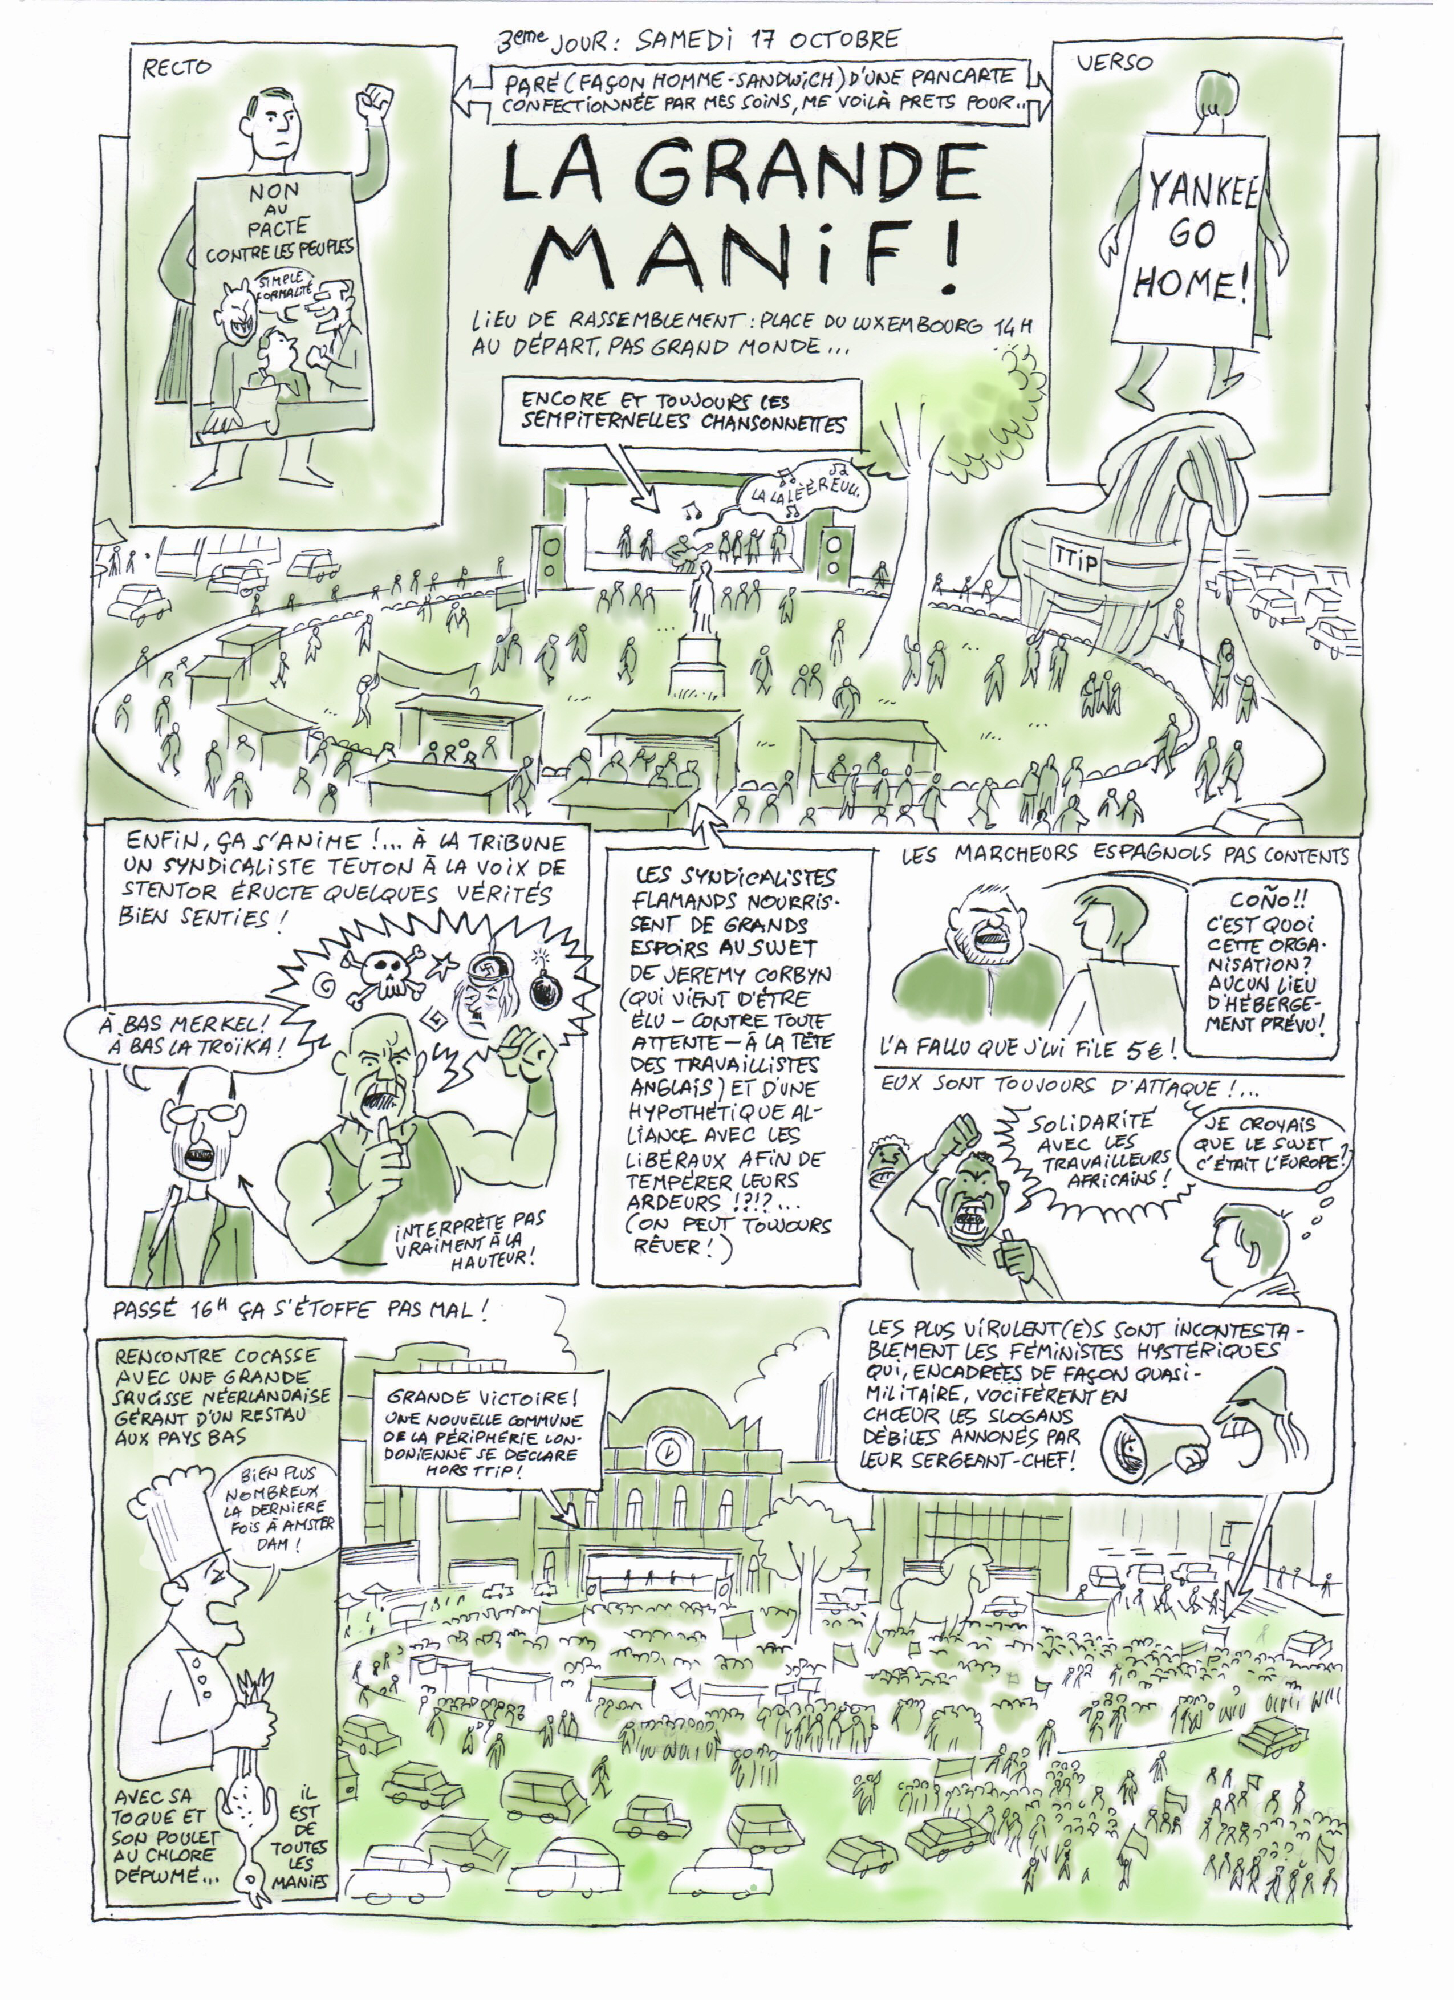 3eme JOUR : SAMEDI 17 OCTOBRE
RECTO
PARÉ (FAÇON HOMME-SANDWICH) D'UNE PANCARTE
CONFECTIONNÉE PAR MES SOINS, ME VOILÀ PRETS POUR...
VERSO
LA GRANDE
MANIF !
NON
AU
PACTE
CONTRE LES PEUPLES
SIMPLE
FORMALITÉ
YANKEE
GO
HOME!
LIEU DE RASSEMBLEMENT : PLACE DU LUXEMBOURG 14H
AU DÉPART, PAS GRAND MONDE...
ENCORE ET TOUJOURS LES
SEMPITERNELLES CHANSONNETTES
TTIP
ENFIN, ÇA S'ANIME !... À LA TRIBUNE
UN SYNDICALISTE TEUTON À LA VOIX DE
STENTOR ÉRUCTE QUELQUES VÉRITÉS
BIEN SENTIES !
À BAS MERKEL!
À BAS LA TROÏKA !
INTERPRÈTE PAS
VRAIMENT À LA
HAUTEUR!
LES SYNDICALISTES
FLAMANDS NOURRIS-
SENT DE GRANDS
ESPOIRS AU SUJET
DE JEREMY CORBYN
(QUI VIENT D'ÊTRE
ÉLU - CONTRE TOUTE
ATTENTE - À LA TÊTE
DES TRAVAILLISTES
ANGLAIS) ET D'UNE
HYPOTHÉTIQUE AL-
LIANCE AVEC LES
LIBÉRAUX AFIN DE
TEMPÉRER LEURS
ARDEURS !?!?...
(ON PEUT TOUJOURS
RÊVER !)
LES MARCHEURS ESPAGNOLS PAS CONTENTS
COÑO!!
C'EST QUOI
CETTE ORGA-
NISATION?
AUCUN LIEU
D'HÉBERGE-
MENT PRÉVU!
L'A FALLU QUE J'LUI FILE 5€ !
EUX SONT TOUJOURS D'ATTAQUE !...
SOLIDARITÉ
AVEC LES
TRAVAILLEURS
AFRICAINS !
JE CROYAIS
QUE LE SUJET
C'ÉTAIT L'EUROPE?
PASSÉ 16H ÇA S'ÉTOFFE PAS MAL !
RENCONTRE COCASSE
AVEC UNE GRANDE
SAUCISSE NÉERLANDAISE
GÉRANT D'UN RESTAU
AUX PAYS BAS
BIEN PLUS
NOMBREUX
LA DERNIERE
FOIS À AMSTER
DAM !
AVEC SA
TOQUE ET
SON POULET
AU CHLORE
DÉPLUMÉ...
IL
EST
DE
TOUTES
LES
MANIFS
GRANDE VICTOIRE!
UNE NOUVELLE COMMUNE
DE LA PÉRIPHÉRIE LON-
DONIENNE SE DECLARE
HORS TTIP!
LES PLUS VIRULENT(E)S SONT INCONTESTA-
BLEMENT LES FÉMINISTES HYSTÉRIQUES
QUI, ENCADRÉES DE FAÇON QUASI-
MILITAIRE, VOCIFÈRENT EN
CHŒUR LES SLOGANS
DÉBILES ANNONÉS PAR
LEUR SERGEANT-CHEF!